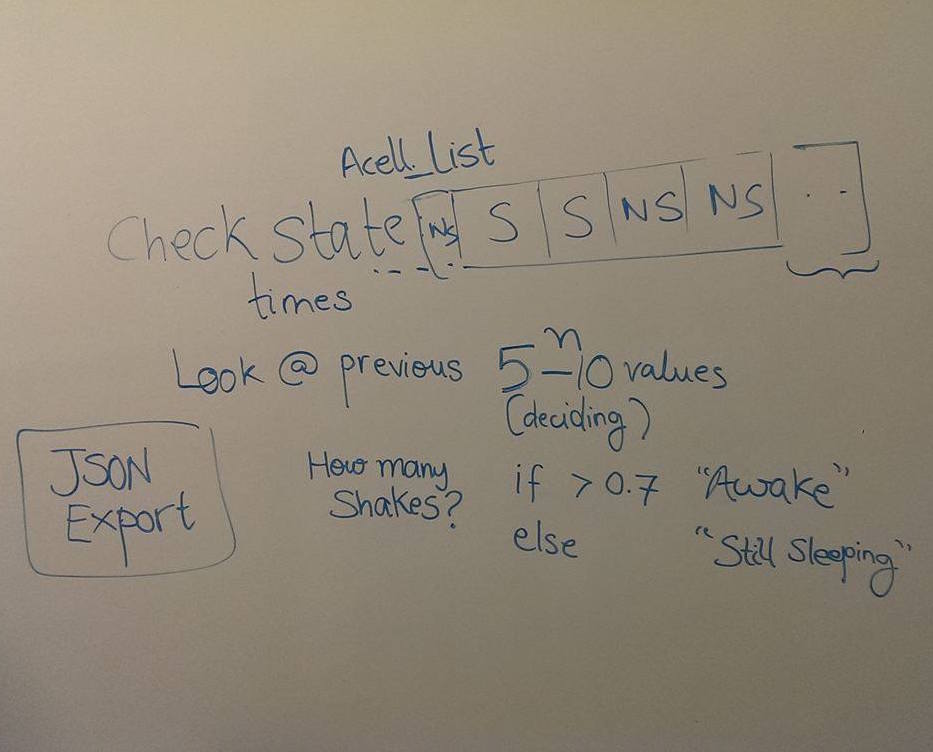 Acell_List
Check State NS S S NS NS . .
times
Look @ previous 5-10 values
n
(deciding)
JSON
Export
How many
Shakes?
if > 0.7 "Awake"
else "Still Sleeping"